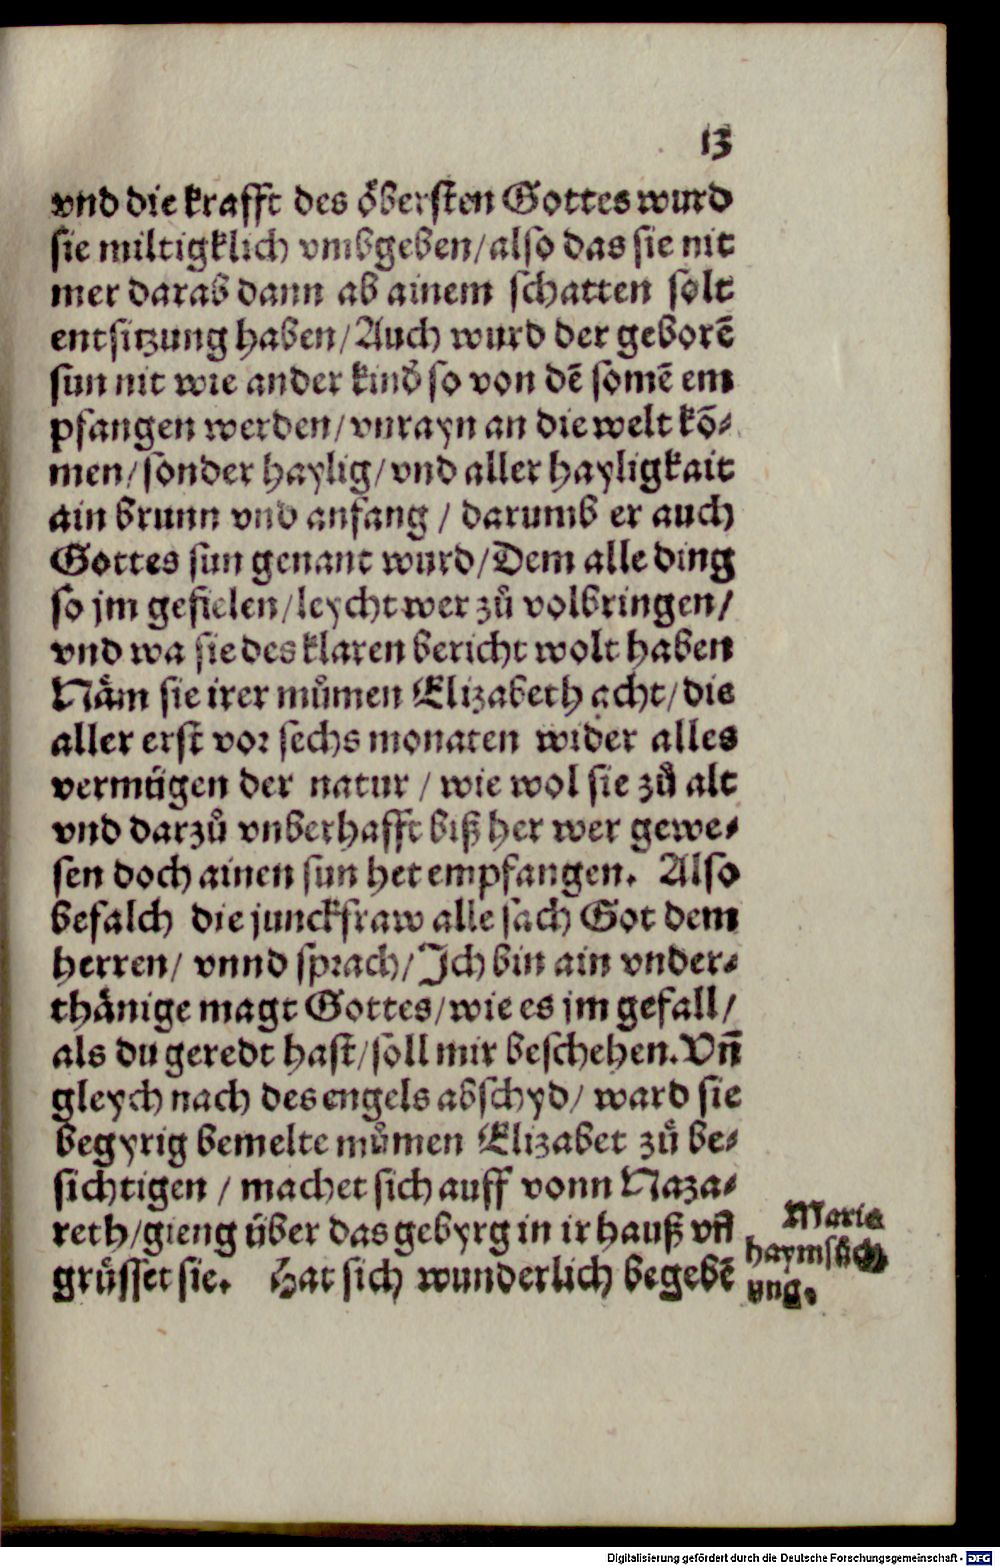 13
vnd die krafft des öbersten Gottes wurd
sie miltigklich vmbgeben/also das sie nit
mer darab dann ab ainem schatten solt
entsitzung haben/Auch wurd der geborē
sun nit wie ander kind so von dē somē em
pfangen werden/vnrayn an die welt kō-
men/sonder haylig/vnd aller hayligkait
ain brunn vnd anfang / darumb er auch
Gottes sun genant wurd/Dem alle ding
so jm gefielen/leycht wer zů volbringen/
vnd wa sie des klaren bericht wolt haben
Näm sie irer můmen Elizabeth acht/die
aller erst vor sechs monaten wider alles
vermügen der natur / wie wol sie zů alt
vnd darzů vnberhafft biß her wer gewe-
sen doch ainen sun het empfangen. Also
befalch die junckfraw alle sach Got dem
herren/ vnnd sprach/Ich bin ain vnder-
thänige magt Gottes/wie es jm gefall/
als du geredt hast/soll mir beschehen.Vn̄
gleych nach des engels abschyd/ ward sie
begyrig bemelte můmen Elizabet zů be-
sichtigen / machet sich auff vonn Naza-
reth/gieng über das gebyrg in ir hauß vn̄
grüsset sie. Hat sich wunderlich begebē
Marie
haymsůch
ung.
Digitalisierung gefördert durch die Deutsche Forschungsgemeinschaft - DFG